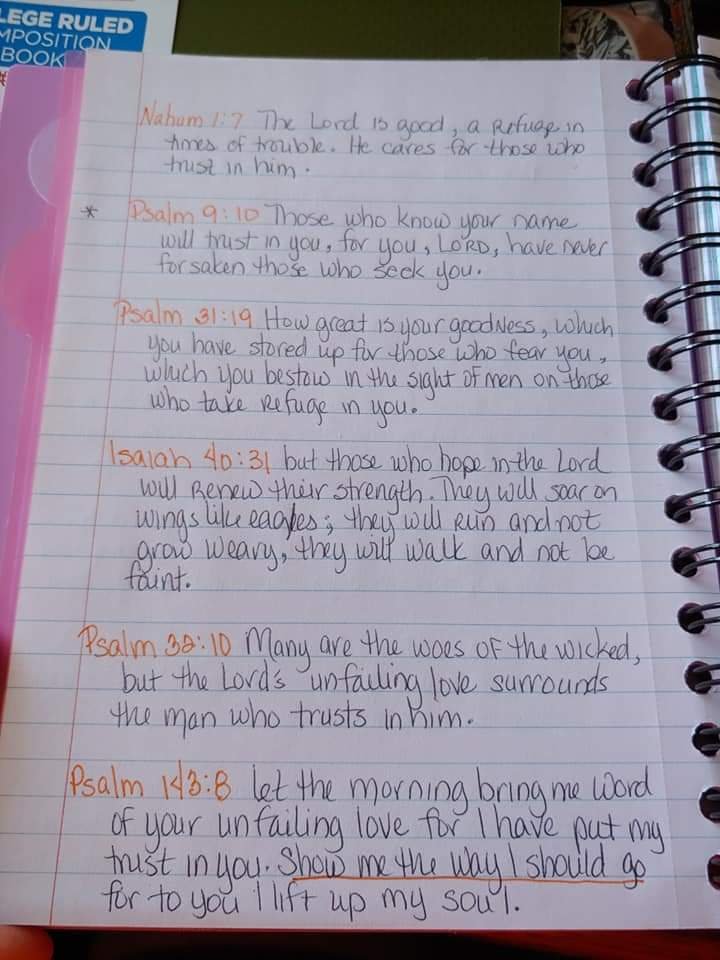 LEGE RULED
MPOSITION
BOOK
Nahum 1:7 The Lord is good, a Refuge in
times of trouble. He cares for those who
trust in him.
* Psalm 9:10 Those who know your name
will trust in you, for you, LORD, have never
forsaken those who seek you.
Psalm 31:19 How great is your goodness, which
you have stored up for those who fear you,
which you bestow in the sight of men on those
who take refuge in you.
Isaiah 40:31 but those who hope in the Lord
will Renew their strength. They will soar on
wings like eagles; they will run and not
grow weary, they will walk and not be
faint.
Psalm 32:10 Many are the woes of the wicked,
but the Lord's unfailing love surrounds
the man who trusts in him.
Psalm 143:8 let the morning bring me word
of your unfailing love for I have put my
trust in you. Show me the way I should go
for to you I lift up my soul.